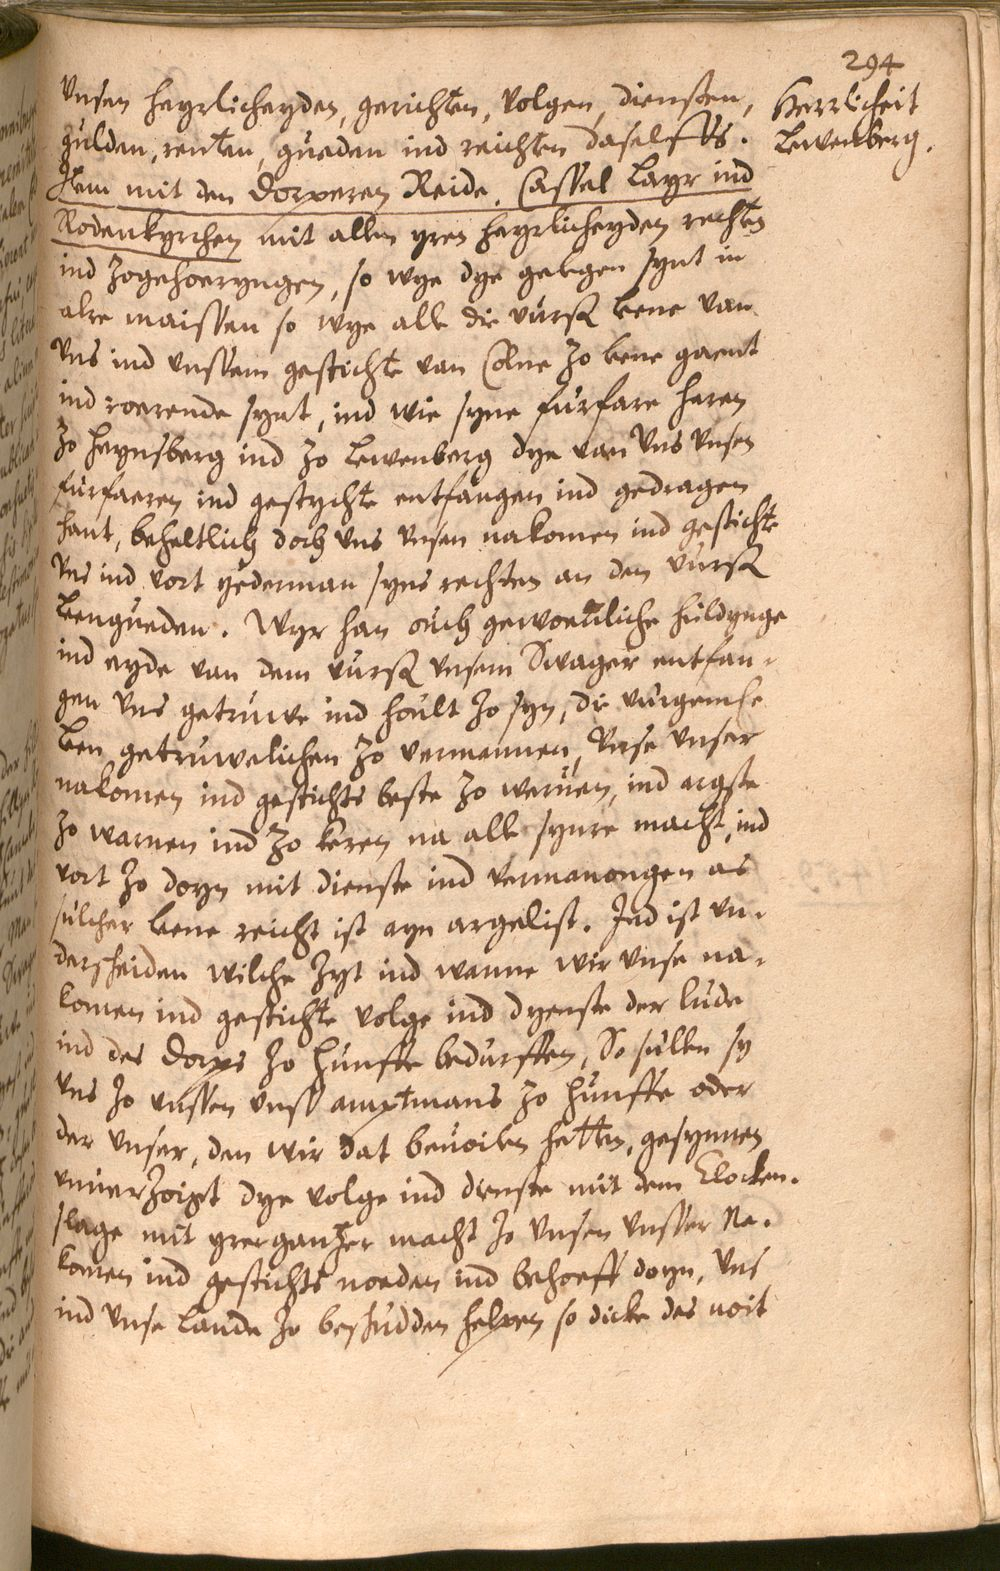 294
Herrlicheit
Lewenberg.
Vnsen heyrlicheyden, gerichten, volgen, diensten,
gulden, renten, gueden ind reichten daselffs.
Item mit den Dorperen Reide, Cassel Layr ind
Rodenkyrchen mit allen yren heyrlicheyden rechten
ind zogehoeryngen, so wye dye gelegen synt in
alre maissen so wye alle die vursz lene van
vns ind vnssem gestichte van Colne zo lene gaent
ind roerende synt, ind wie syne furfare heren
zo Heynsberg ind zo Lewenberg dye van vns vnsen
furfaeren ind gestychte entfangen ind gedragen
hant, beheltlich doch vns vnsen nakomen ind gestichte
vns ind vort yederman syns rechten an den vursz
leengueden. Wyr han ouch gewoentliche huldynge
ind eyde van dem vursz vnsem Swager entfan-
gen vns getruwe ind hoult zo syn, die vurgemelte
leen getruwelichen zo vermannen, vnse vnser
nakomen ind gestichts beste zo weruen, ind argste
zo warnen ind zo keren na alle synre macht, ind
vort zo doyn mit dienste ind vermanongen as
sulcher lene reicht ist ayn argelist. Ind ist vn-
derscheiden wilche zyt ind wanne wir vnse na-
komen ind gestichte volge ind dyenste der lude
ind des Dorps zo Hunffe bedurfften, So sullen sy
vns zo vnssen vnss amptmans zo Hunffe oder
der vnser, den wir dat beuoilen hetten, gesynnen
vnuerzoigt dye volge ind dienste mit dem Clocken-
slage mit yrer gantzer macht zo vnsen vnsser Na-
komen ind gestichts noeden ind behoeff doyn, vns
ind vnse Lande zo beschudden helpen so dicke des noit